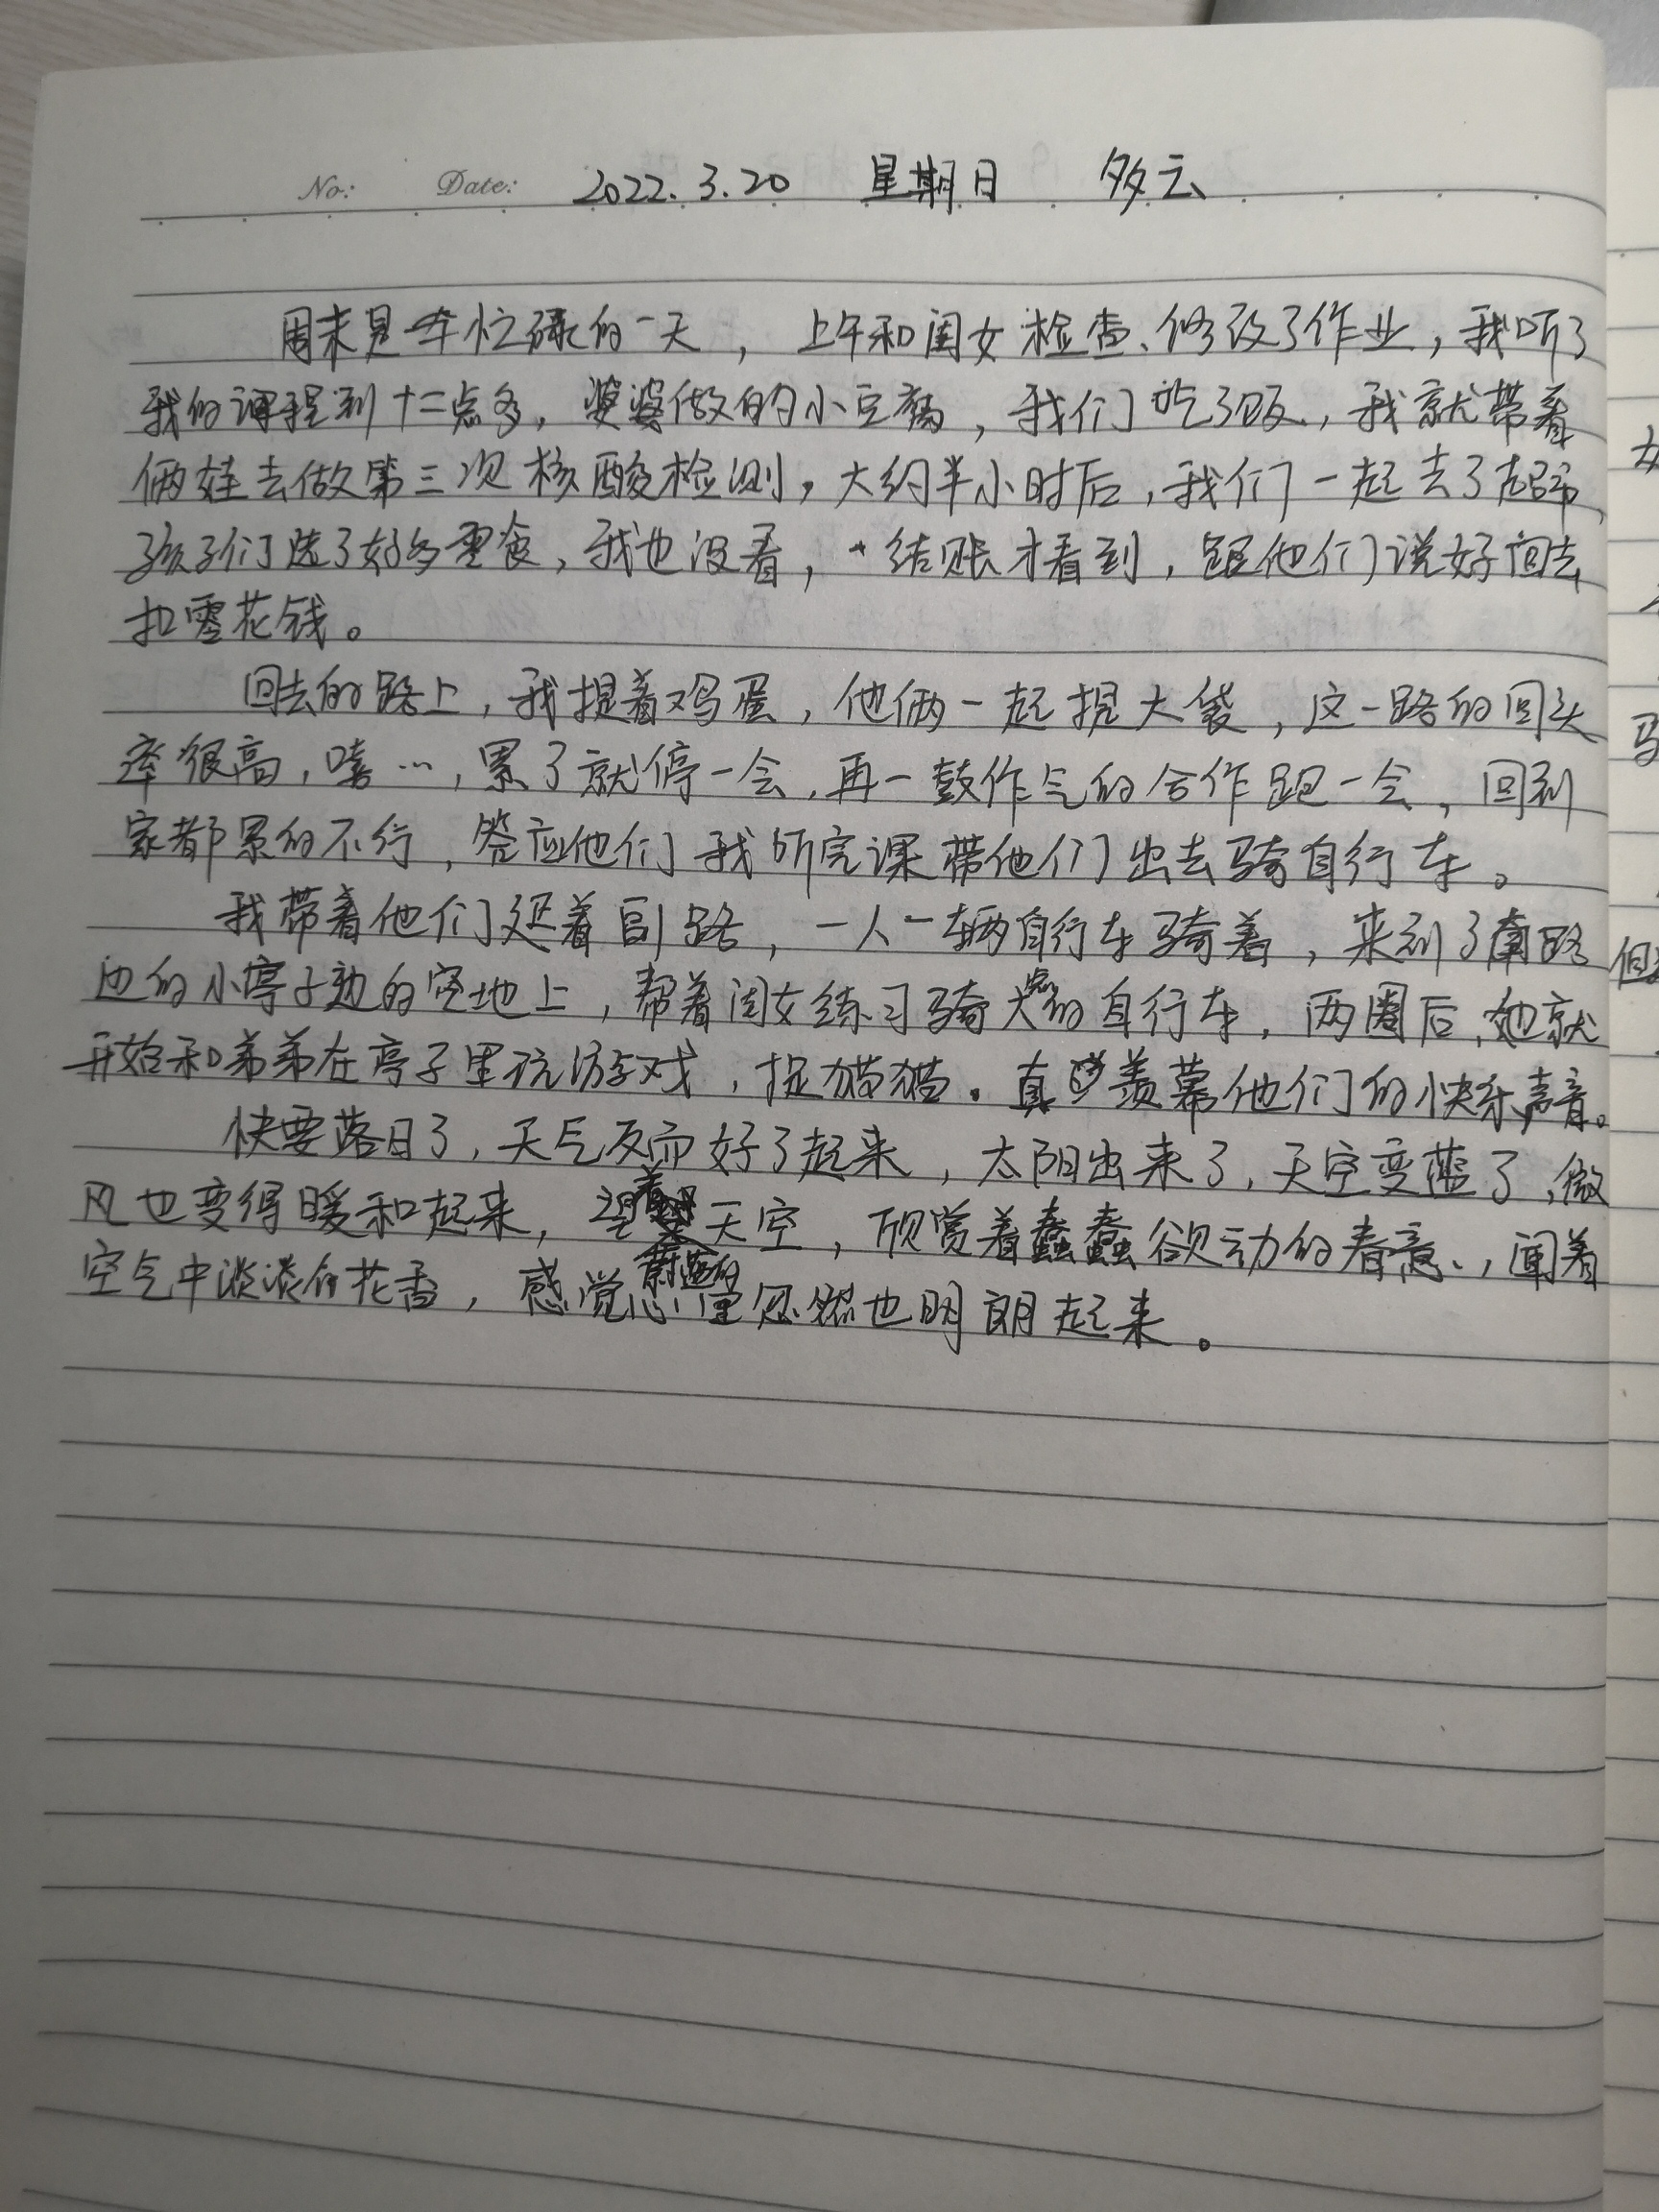 No: Date: 2022.3.20 星期日 多云
周末是忙碌的一天，上午和闺女检查、修改了作业，我听了
我的课程到十二点多，婆婆做的小豆腐，我们吃了饭，我就带着
俩娃去做第三次核酸检测，大约半小时后，我们一起去了超市，
孩子们选了好多零食，我也没看，结账才看到，跟他们说好回去
扣零花钱。
回去的路上，我提着鸡蛋，他俩一起提大袋，这一路的回头
率很高，嘻…，累了就停一会，再一鼓作气的合作跑一会，回到
家都累的不行，答应他们我听完课带他们出去骑自行车。
我带着他们延着副路，一人一辆自行车骑着，来到了南路
边的小亭子边的空地上，帮着闺女练习骑大点的自行车，两圈后，她就
开始和弟弟在亭子里玩游戏，捉猫猫。真羡慕他们的快乐声音。
快要落日了，天气反而好了起来，太阳出来了，天空变蓝了，微
风也变得暖和起来，望着蔚蓝的天空，欣赏着蠢蠢欲动的春意，闻着
空气中淡淡的花香，感觉心里忽然也明朗起来。